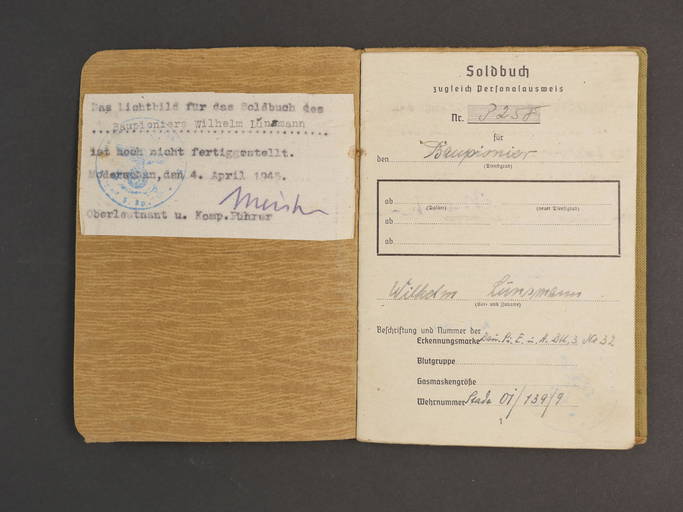 Das Lichtbild für das Soldbuch des
Baupioniers Wilhelm Lünsmann
ist noch nicht fertiggestellt.
den 4. April 1945.
Oberleutnant u. Komp.Führer
Soldbuch
zugleich Personalausweis
Nr.
für
den Baupionier
(Dienstgrad)
ab
(Datum) (neuer Dienstgrad)
ab
ab
Wilhelm Lünsmann
(Vor- und Zuname)
Beschriftung und Nummer der
Erkennungsmarke
Blutgruppe
Gasmaskengröße
Wehrnummer Stade 01/139/9
1